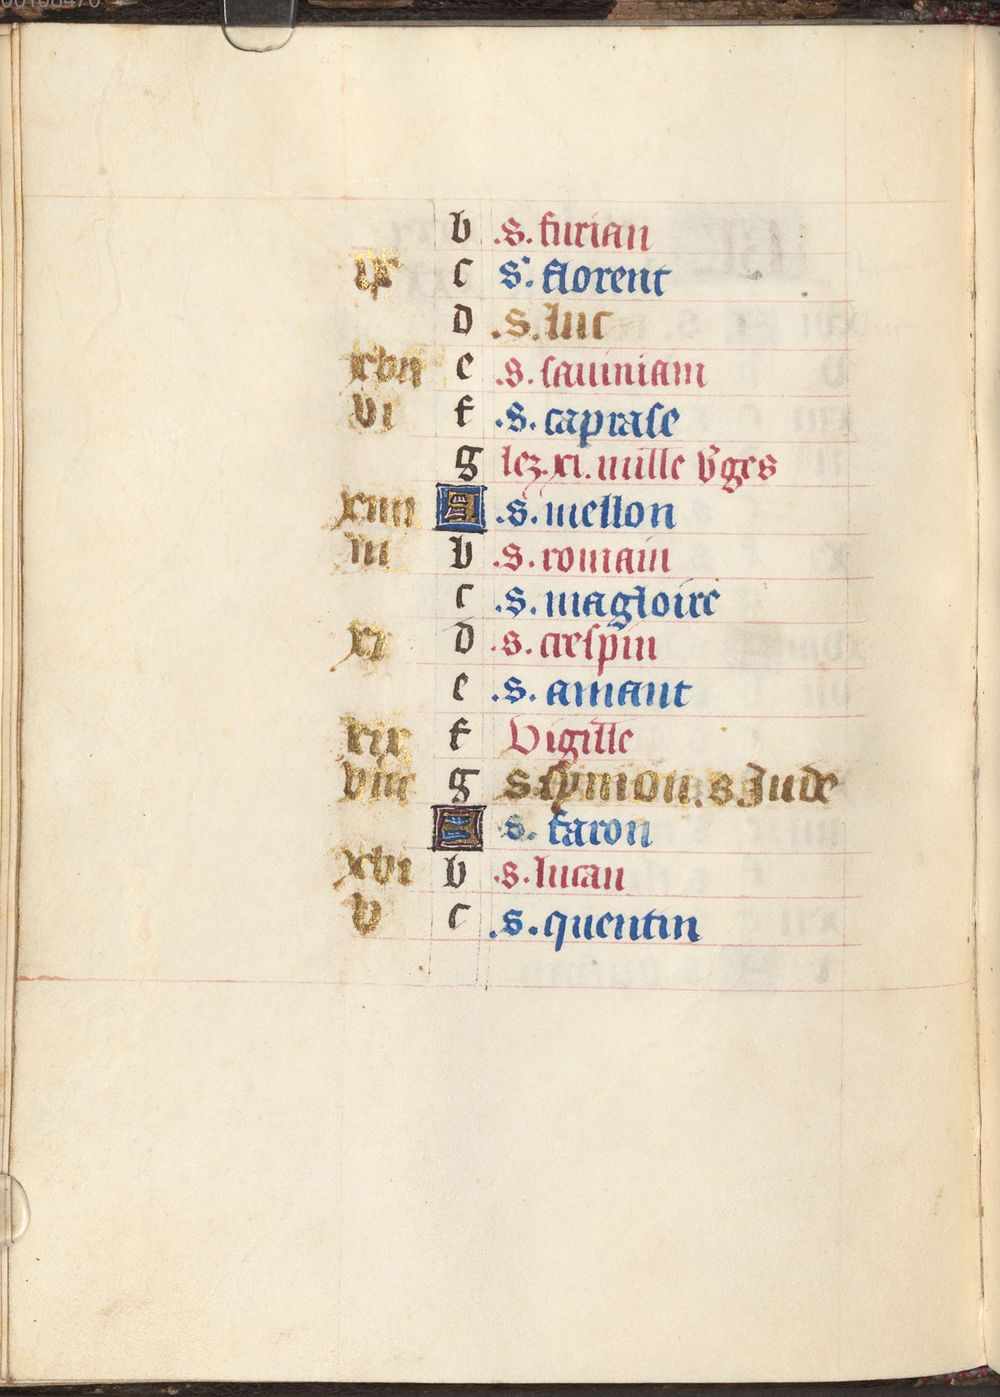 b .s. furian
ix c s. florent
d .s. luc
xvii e .s. sauiniam
vi f .s. caprase
g lez .xi. mille v̄ges
xiiii A .s. mellon
iii b .s. romain
c .s. magloire
xi d .s. crespin
e .s. amant
xix f Vigille
viii g s. symon. s. Jude
A s. faron
xvi b .s. lucan
v c .s. quentin